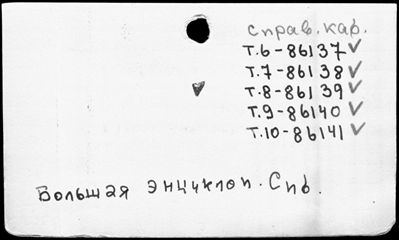 справ. кар.
Т.6-86137✓
Т.7-86138✓
Т.8-86139✓
Т.9-86140✓
Т.10-86141✓
Большая энциклоп. Спб.